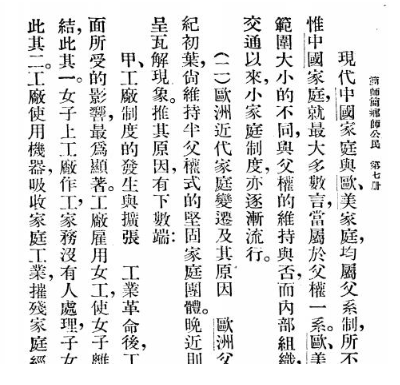 簡師簡鄉師公民 第七册
現代中國家庭與歐、美家庭,均屬父系制,所不
惟中國家庭,就最大多數言,當屬於父權一系。歐、美
範圍大小的不同,與父權的維持與否,而內部組織,
交通以來,小家庭制度,亦逐漸流行。
(二)歐洲近代家庭變遷及其原因 歐洲父
紀初葉,尙維持半父權式的堅固家庭團體。晚近則
呈瓦解現象。推其原因,有下數端:
甲、工廠制度的發生與擴張 工業革命後,工
面所受的影響,最爲顯著。工廠雇用女工,使女子離
結,此其一。女子上工廠作工,家務沒有人處理,子女
此其二。工廠使用機器,吸收家庭工業,摧殘家庭經